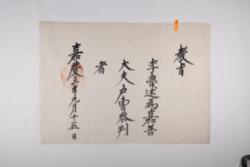 教旨
李述為嘉善
大夫戶曹參判
者
嘉慶三年九月十五日